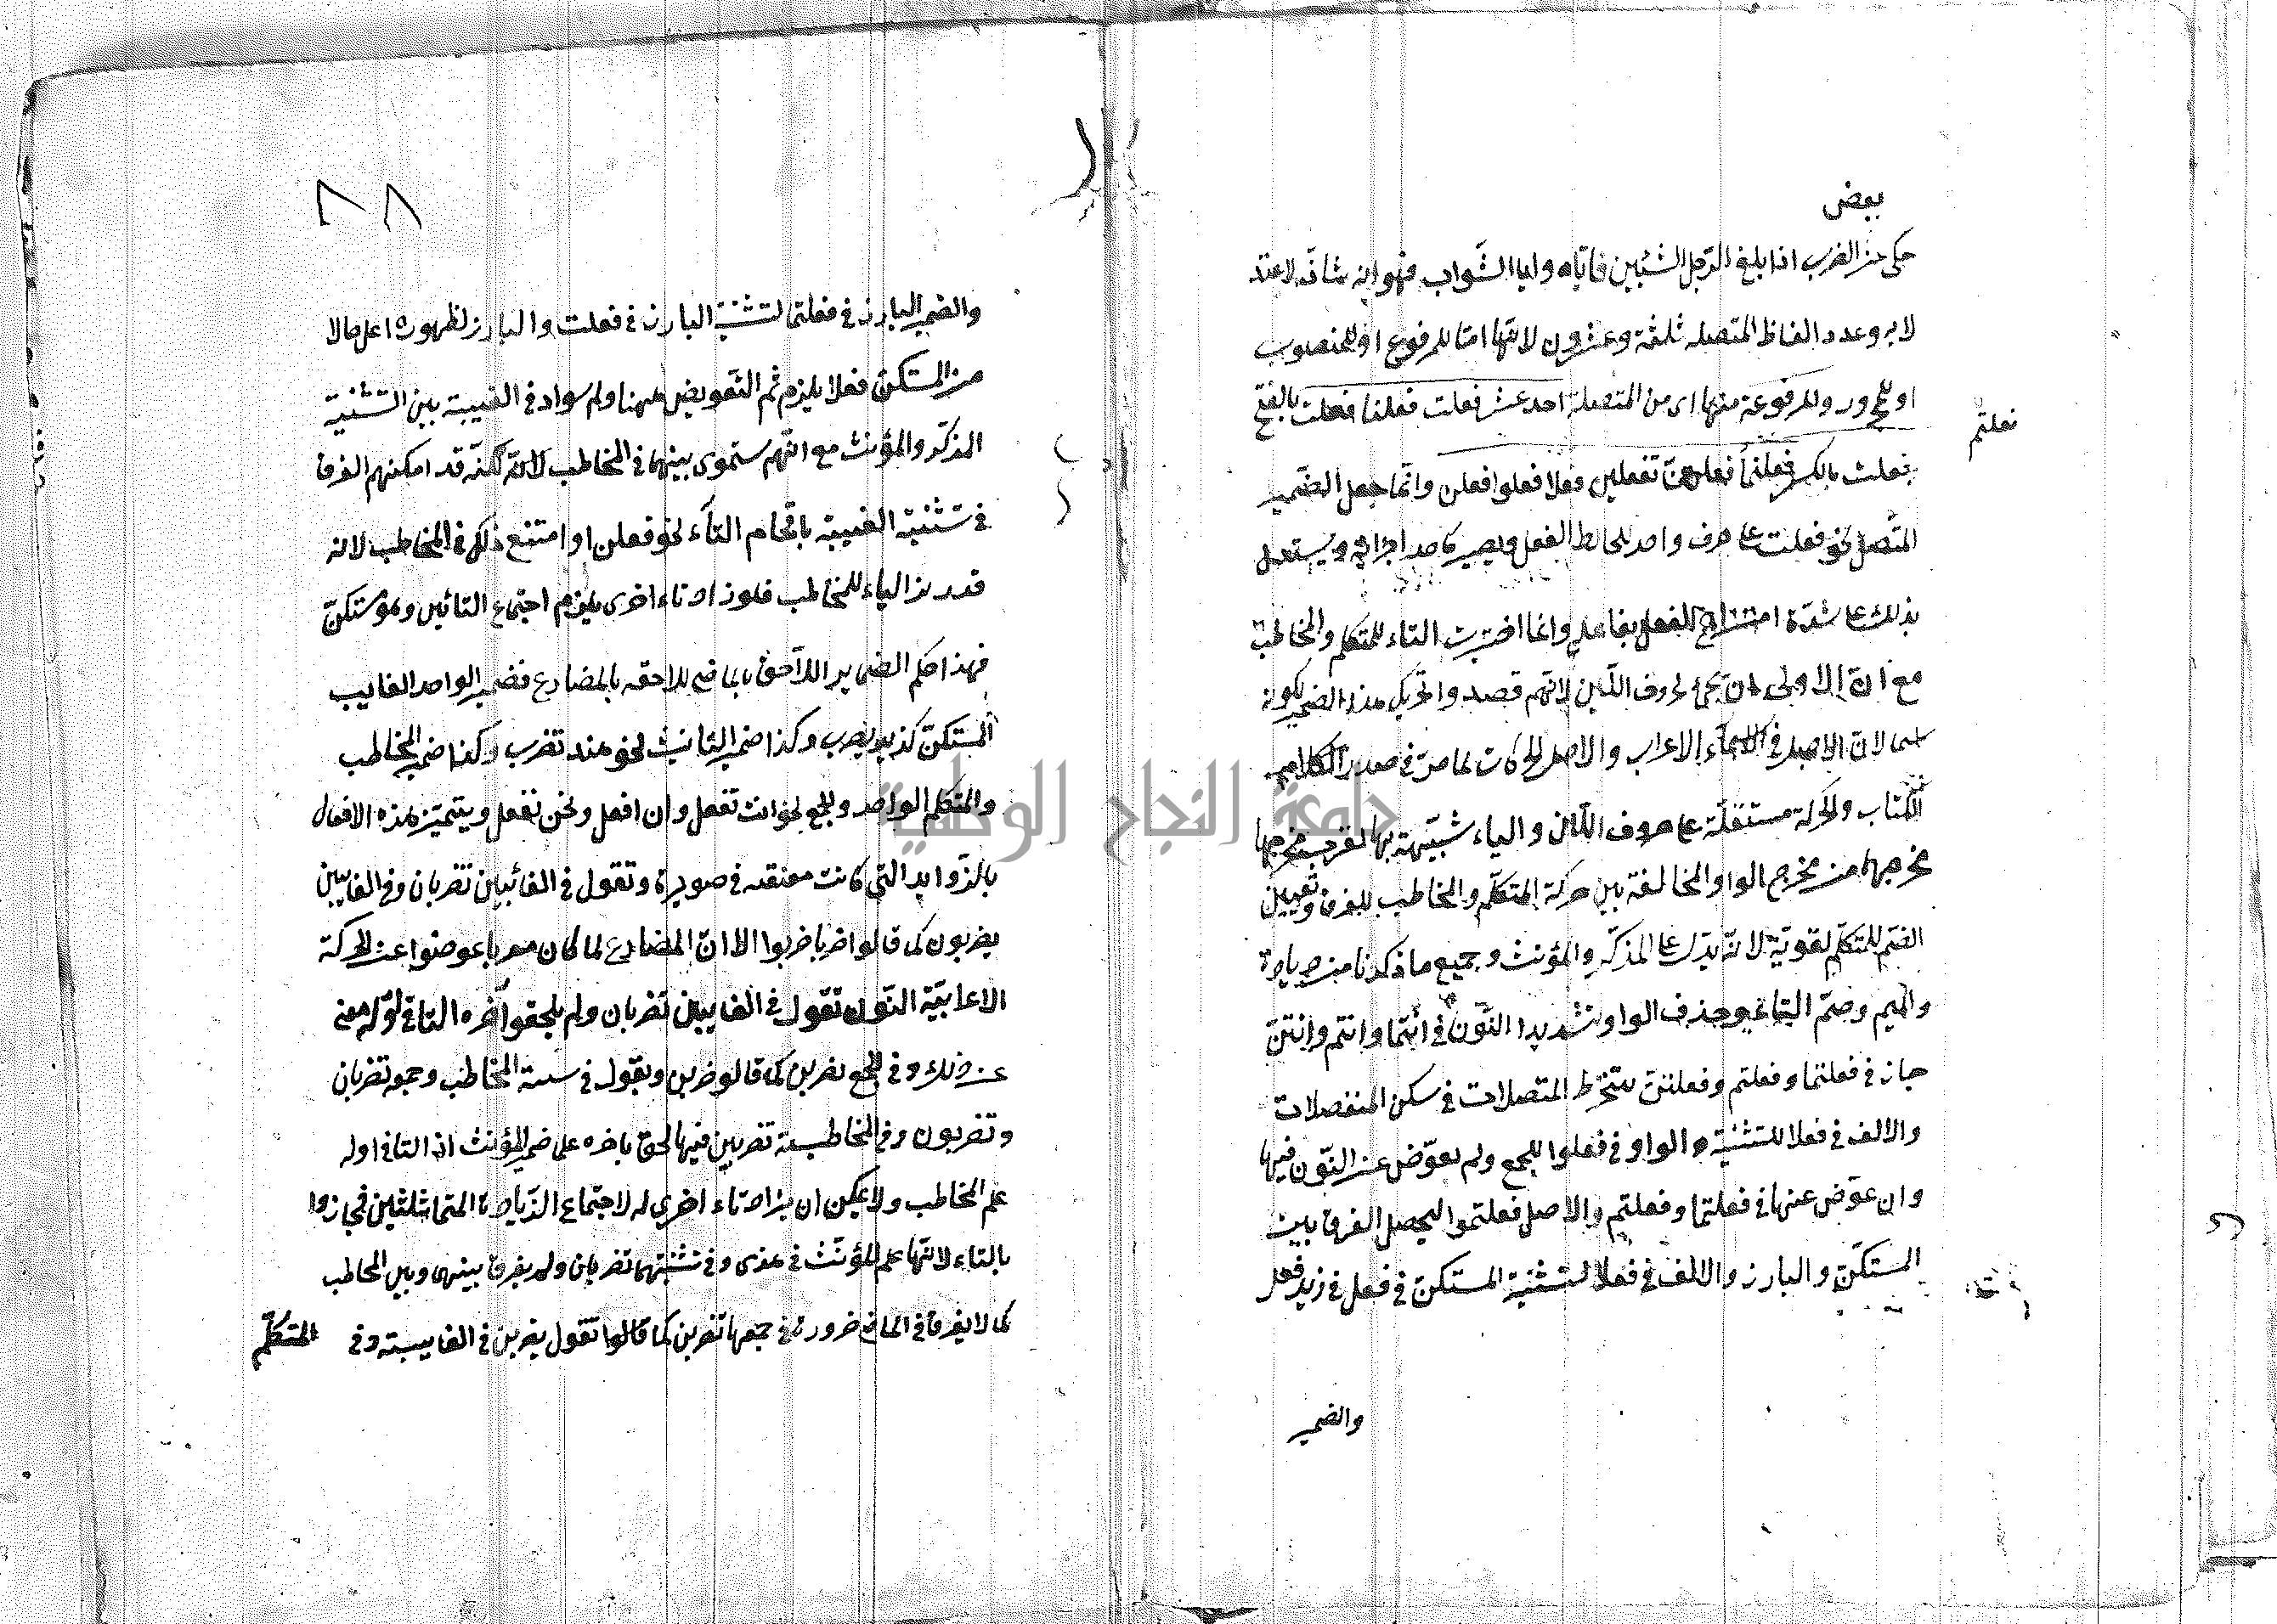 بعض
حكى عن العرب اذا بلغ الرجل الستين فاياه وايا الشواب فهو انه شاذ لا عتد
لا به وعدد الفاظ المتصله ثلثة وعشرون لانها اما للمرفوع او للمنصوب
او للمجرور وللمرفوعة منها اى من المتصلة احد عشر فعلت فعلنا فعلت بالفتح
فعلتم
فعلت بالكسر فعلتما فعلتن تفعلين فعلا فعلوا فعلن وانما جعل الضمير
المتصل نحو فعلت على حرف واحد ليخالط الفعل ويصير كاحد اجزائه ويستعمل
بذلك على شدة امتزاج الفعل بفاعله وانما اختيرت التاء للمتكلم والمخاطب
مع ان الاولى حروف اللين لانهم قصدوا تحريك هذا الضمير لكونه
اسما لان الاصل في الاسماء الاعراب والاصل الحركات لما مر في صدر الكلام
الكتاب والحركة مستثقلة على حروف اللين والياء شبيهة بها لقرب مخرجها
مخرجها من مخرج الواو والمخالفة بين حركة المتكلم والمخاطب للفرق وتعيين
الضم للمتكلم لقوته لانه يدل على المذكر والمؤنث وجميع ما ذكرنا من زيادة
والميم وضم التاء وحذف الواو وتشديد النون في انتما وانتم وانتن
جاز في فعلتما وفعلتم وفعلتن لتنخرط المتصلات في سكن المنفصلات
والالف في فعلا للتثنية والواو في فعلوا للجمع ولم يعوض عن النون فيها
وان عوض عنها في فعلتما وفعلتم والاصل فعلتموا ليحصل الفرق بين
المستكن والبارز والالف في فعلا لتثنية المستكن في فعل في زيد فعل
والضمير
٨٨
والضمير البارز في فعلتما لتثنية البارز في فعلت والبارز لظهوره اعلى حالا
من المستكن فعلا يلزم ثم التعويض ههنا ولم سواد في الغيبة بين التثنية
المذكر والمؤنث مع انهم ستموى بينهما في المخاطب لانه لكنه قد امكنهم الفرق
في تثنية الغيبة باقحام التاء نحو فعلن او امتنع ذلك في المخاطب لانه
قد زيد الياء للمخاطب فلو زاد تاء اخرى يلزم اجتماع التائين وهو مستكن
فهذا حكم الضماير اللاحق بالماضى للاحقه بالمضارع فضمير الواحد الغايب
المستكن كزيد يضرب وكذا ضمير التانيث نحو هند تضرب وكذا ضمير المخاطب
والمتكلم الواحد وللجمع نحو انت تفعل وان افعل ونحن نفعل ويتميز هذه الافعال
بالزوايد التي كانت معتقه في صويرة وتقول في الغائبين تضربان وفي الغايبين
يضربون كما قالوا ضربا ضربوا الا ان المضارع لما كان معربا عوضوا عن الحركة
الاعرابية النون تقول في الغايبين تضربان ولم يلحقوا آخره التا في اوله معنى
عن ذلك وفي الجمع يضربن كما قالو ضربن وتقول في المخاطب وجمعه تضربان
وتضربون وفي المخاطبة تضربين فيها الحق باخره على ضمير المؤنث اذ التا في اوله
علم المخاطب ولا يمكن ان يزاد تاء اخرى له لاجتماع الزيادة المتماثلثين فجازوا
بالتاء لانها علم للمؤنث في هذى وفي تثنيتهما تضربان ولم يفرق بينهما وبين المخاطب
كما لا يفرق في الماضى ضرورة في جمعها تضربن كما قالوا تقول يضربن في الغايبته وفي
المتكلم
جامعة النجاح الوطنية